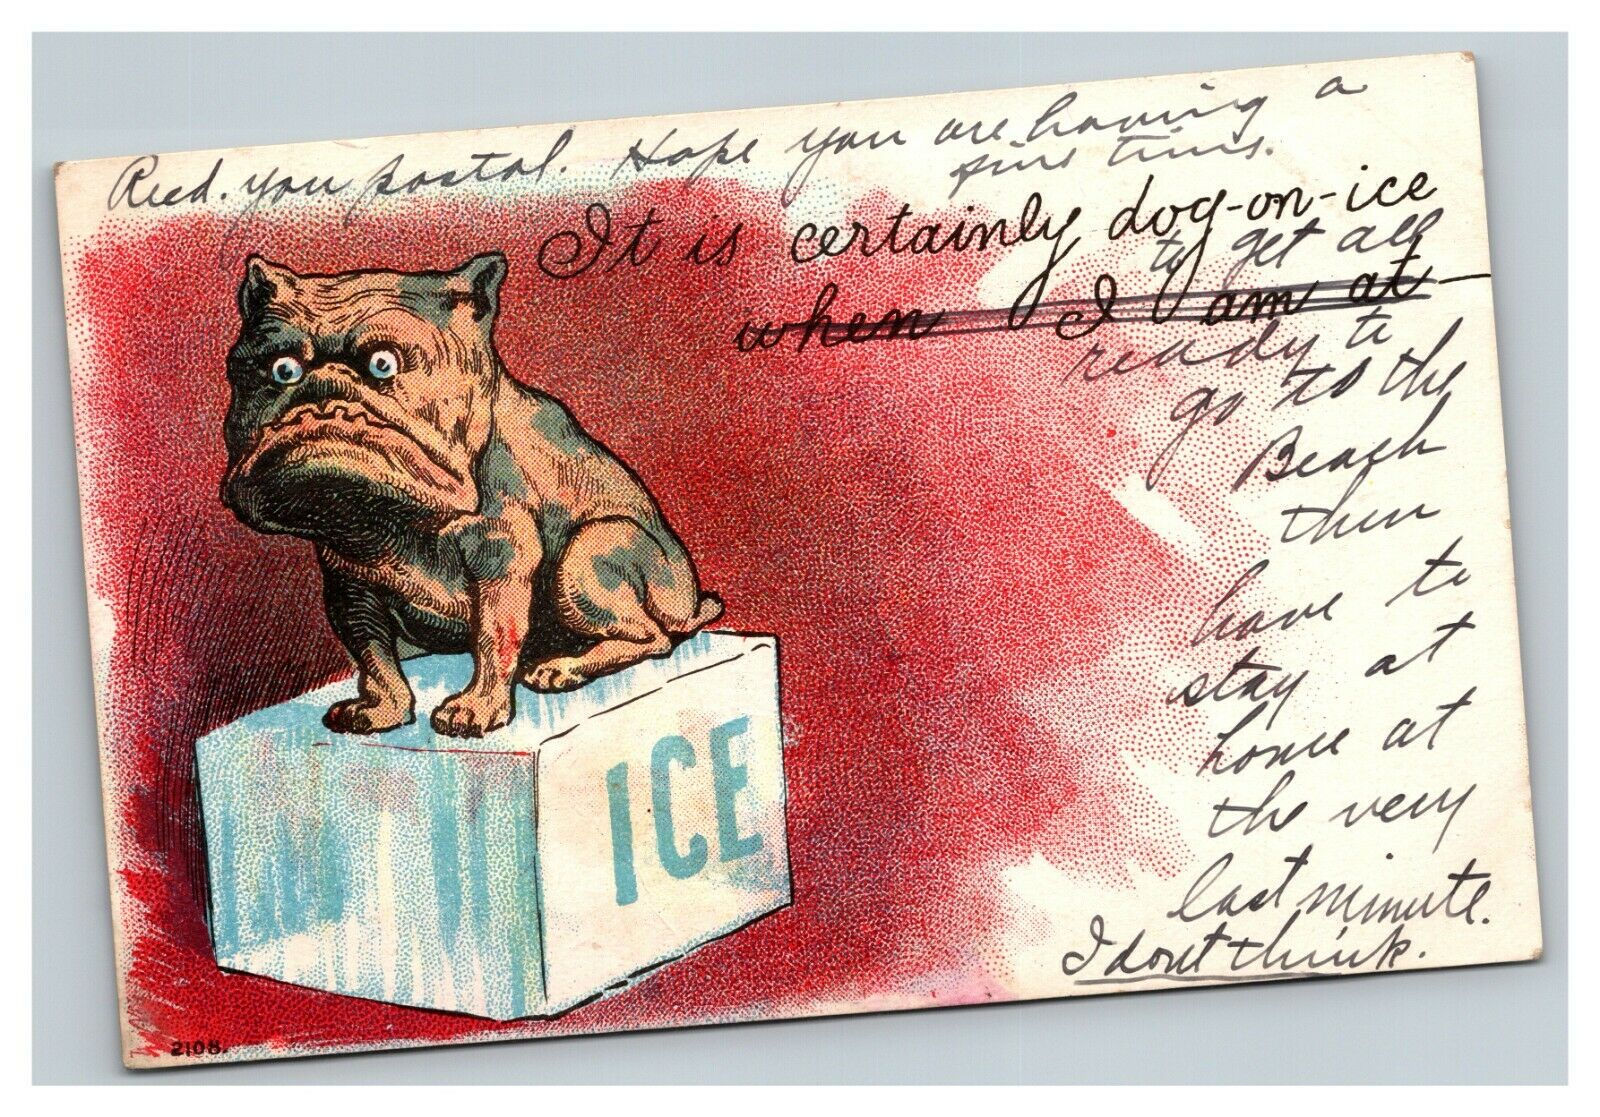 Recd. you postal. Hope you are having a
fine time.
It is certainly dog-on-ice
to get all
when I am at
ready to
go to the
Beach
then
have to
stay at
home at
the very
last minute.
I dont think.
ICE
2108.